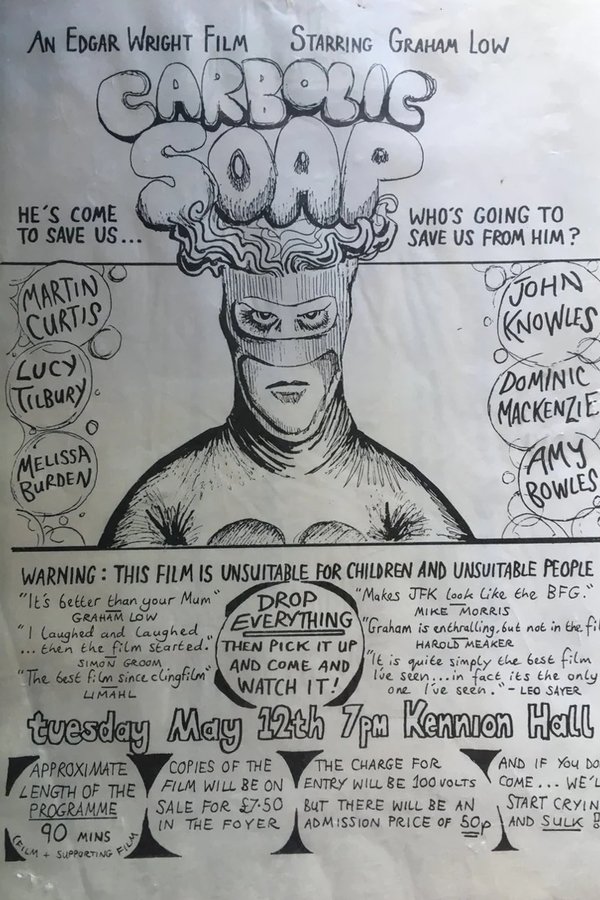 AN EDGAR WRIGHT FILM STARRING GRAHAM LOW
CARBOLIC
SOAP
HE'S COME
TO SAVE US...
WHO'S GOING TO
SAVE US FROM HIM?
MARTIN
CURTIS
LUCY
TILBURY
MELISSA
BURDEN
JOHN
KNOWLES
DOMINIC
MACKENZIE
AMY
BOWLES
WARNING: THIS FILM IS UNSUITABLE FOR CHILDREN AND UNSUITABLE PEOPLE
"It's better than your Mum"
GRAHAM LOW
"I laughed and laughed
...then the film started."
SIMON GROOM
"The best film since clingfilm"
LIMAHL
DROP
EVERYTHING
THEN PICK IT UP
AND COME AND
WATCH IT!
"Makes JFK look like the BFG."
MIKE MORRIS
"Graham is enthralling, but not in the fil
HAROLD MEAKER
"It is quite simply the best film
I've seen...in fact its the only
one I've seen." - LEO SAYER
tuesday May 12th 7pm Kennion Hall
APPROXIMATE
LENGTH OF THE
PROGRAMME
90 MINS
(FILM + SUPPORTING FILM
COPIES OF THE
FILM WILL BE ON
SALE FOR £7.50
IN THE FOYER
THE CHARGE FOR
ENTRY WILL BE 100 VOLTS
BUT THERE WILL BE AN
ADMISSION PRICE OF 50p
AND IF YOU DO
COME... WE'L
START CRYIN
AND SULK!!